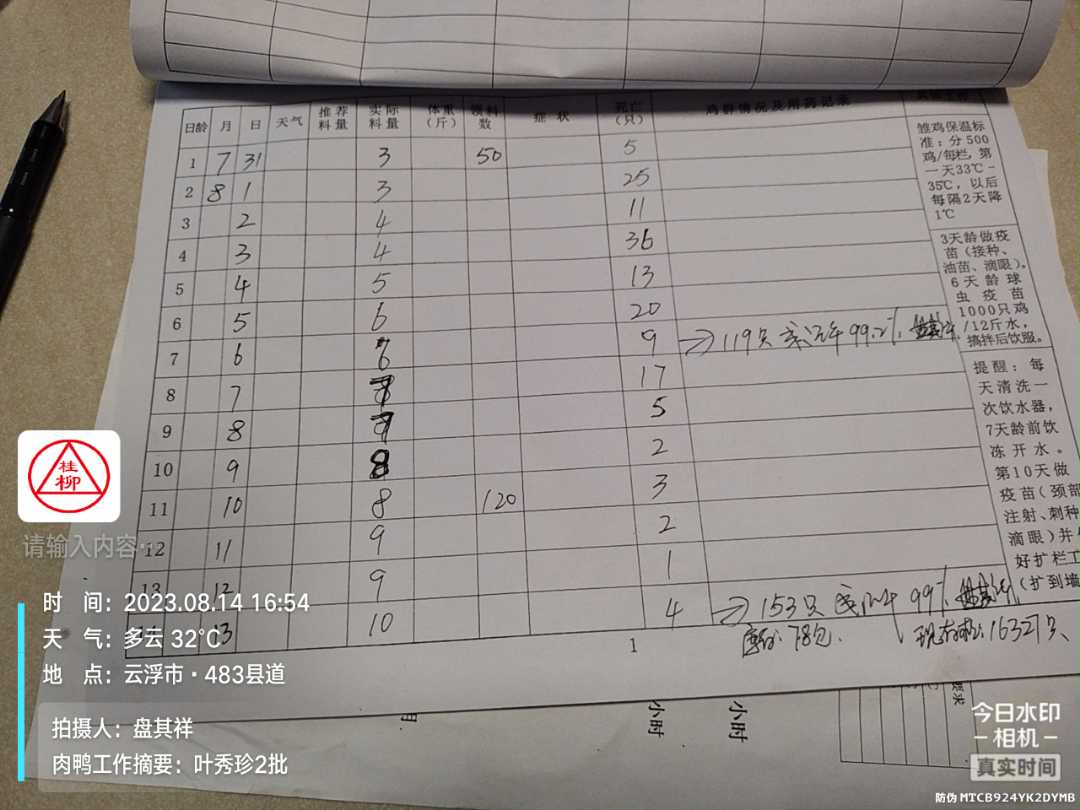 日龄 月 日 天气 推荐料量 实际料量 体重(斤) 领料数 症状 死亡(只) 鸡群情况及用药记录
1 7 31 3 50 5
2 8 1 3 25
3 2 4 11
4 3 4 36
5 4 5 13
6 5 6 20
7 6 6 9 119只 成活率99.2%
8 7 7 17
9 8 7 5
10 9 8 2
11 10 8 120 3
12 11 9 2
13 12 9 1
13 10 4 153只 成活率99%
78包. 现存栏:16327只
1
雏鸡保温标
准:分500
鸡/每栏,第
一天33℃-
35℃,以后
每隔2天降
1℃
3天龄做疫
苗(接种、
油苗、滴眼)。
6天龄球
虫疫苗
1000只鸡
/12斤水,
搞拌后饮服。
提醒:每
天清洗一
次饮水器,
7天龄前饮
冻开水。
第10天做
疫苗(颈部
注射、刺种
滴眼)并
好扩栏工
(扩到墙
小时
小时
桂柳
请输入内容...
时 间:2023.08.14 16:54
天 气:多云 32℃
地 点:云浮市·483县道
拍摄人:盘其祥
肉鸭工作摘要:叶秀珍2批
今日水印
-相机-
真实时间
防伪 MTCB924YK2DYMB